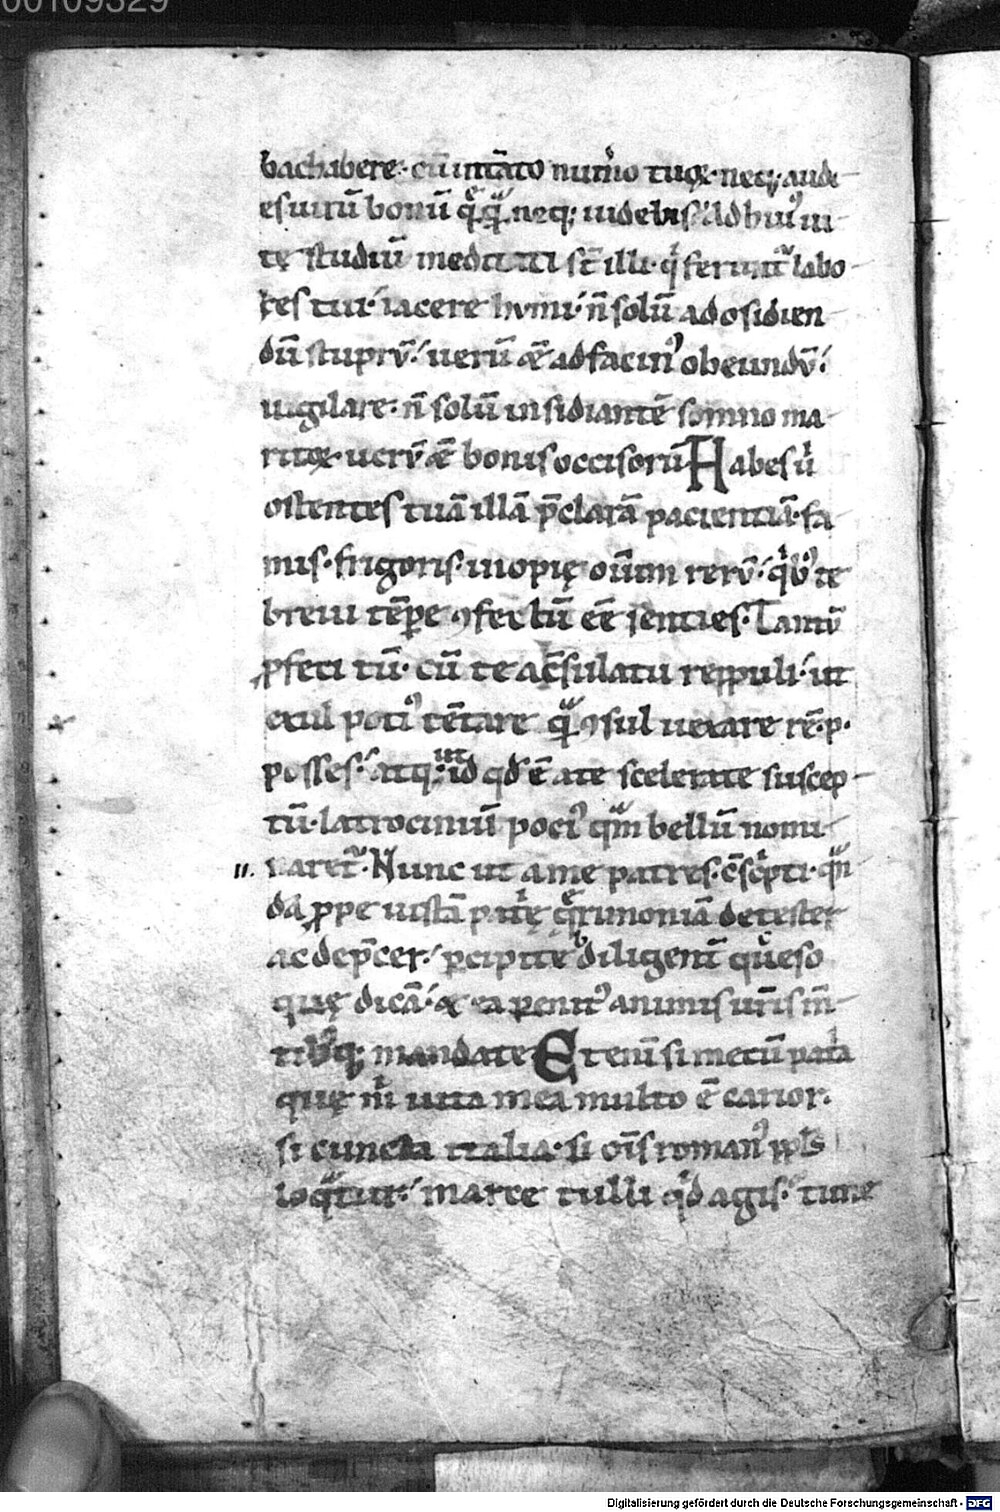 00109329
bachabere· cū intāto num̾o tuoꝝ· neq; audi-
es uirū bonū q̄q̄· neq; uidebis· Ad huiꝰ ui-
tę studiū meditati st̄ illi· qͥ ferunt̄ labo-
res tui· iacere humi· n̄ solū ad osidien
dū stuprū· uerū &̄ ad facinꝰ obeundū·
uigilare· n̄ solū insidiantē somno ma-
ritoꝝ· uerū &̄ bonis occisorū Habes u͛
ostentes tuā illā p̄clarā pacientiā· fa-
mis· frigoris· inopię om̄iū rerū· qͥbꝰ te
breui tēpe ꝯfectū eē senties· Tantū
ꝓfeci tū· cū te a c̄sulatu reppuli· ut
exul potiꝰ tēptare qͣ ꝯsul uexare rē· p·
posses· Atq; ut id qd̄ ē a te scelerate suscep-
tū· latrociniū pociꝰ qͣm bellū nomi-
11. naret᷑· Nunc ut a me patres· c̄scͥpti· qͣn
dā ꝓpe iustā pat͛ę qͥrimoniā detester
ac dep̄cer· ꝑcipite diligent̄ queso
quę dicā· & ea penitꝰ animis ur̄is m̄-
tibꝰq; mandate Etenī si mecū pat͛a
quę m͛ uita mea multo ē carior·
si cuncta italia· si oīs romanꝰ ppl̄s
loqͣtur· marce tulli qͥd agis· tune
Digitalisierung gefördert durch die Deutsche Forschungsgemeinschaft - DFG